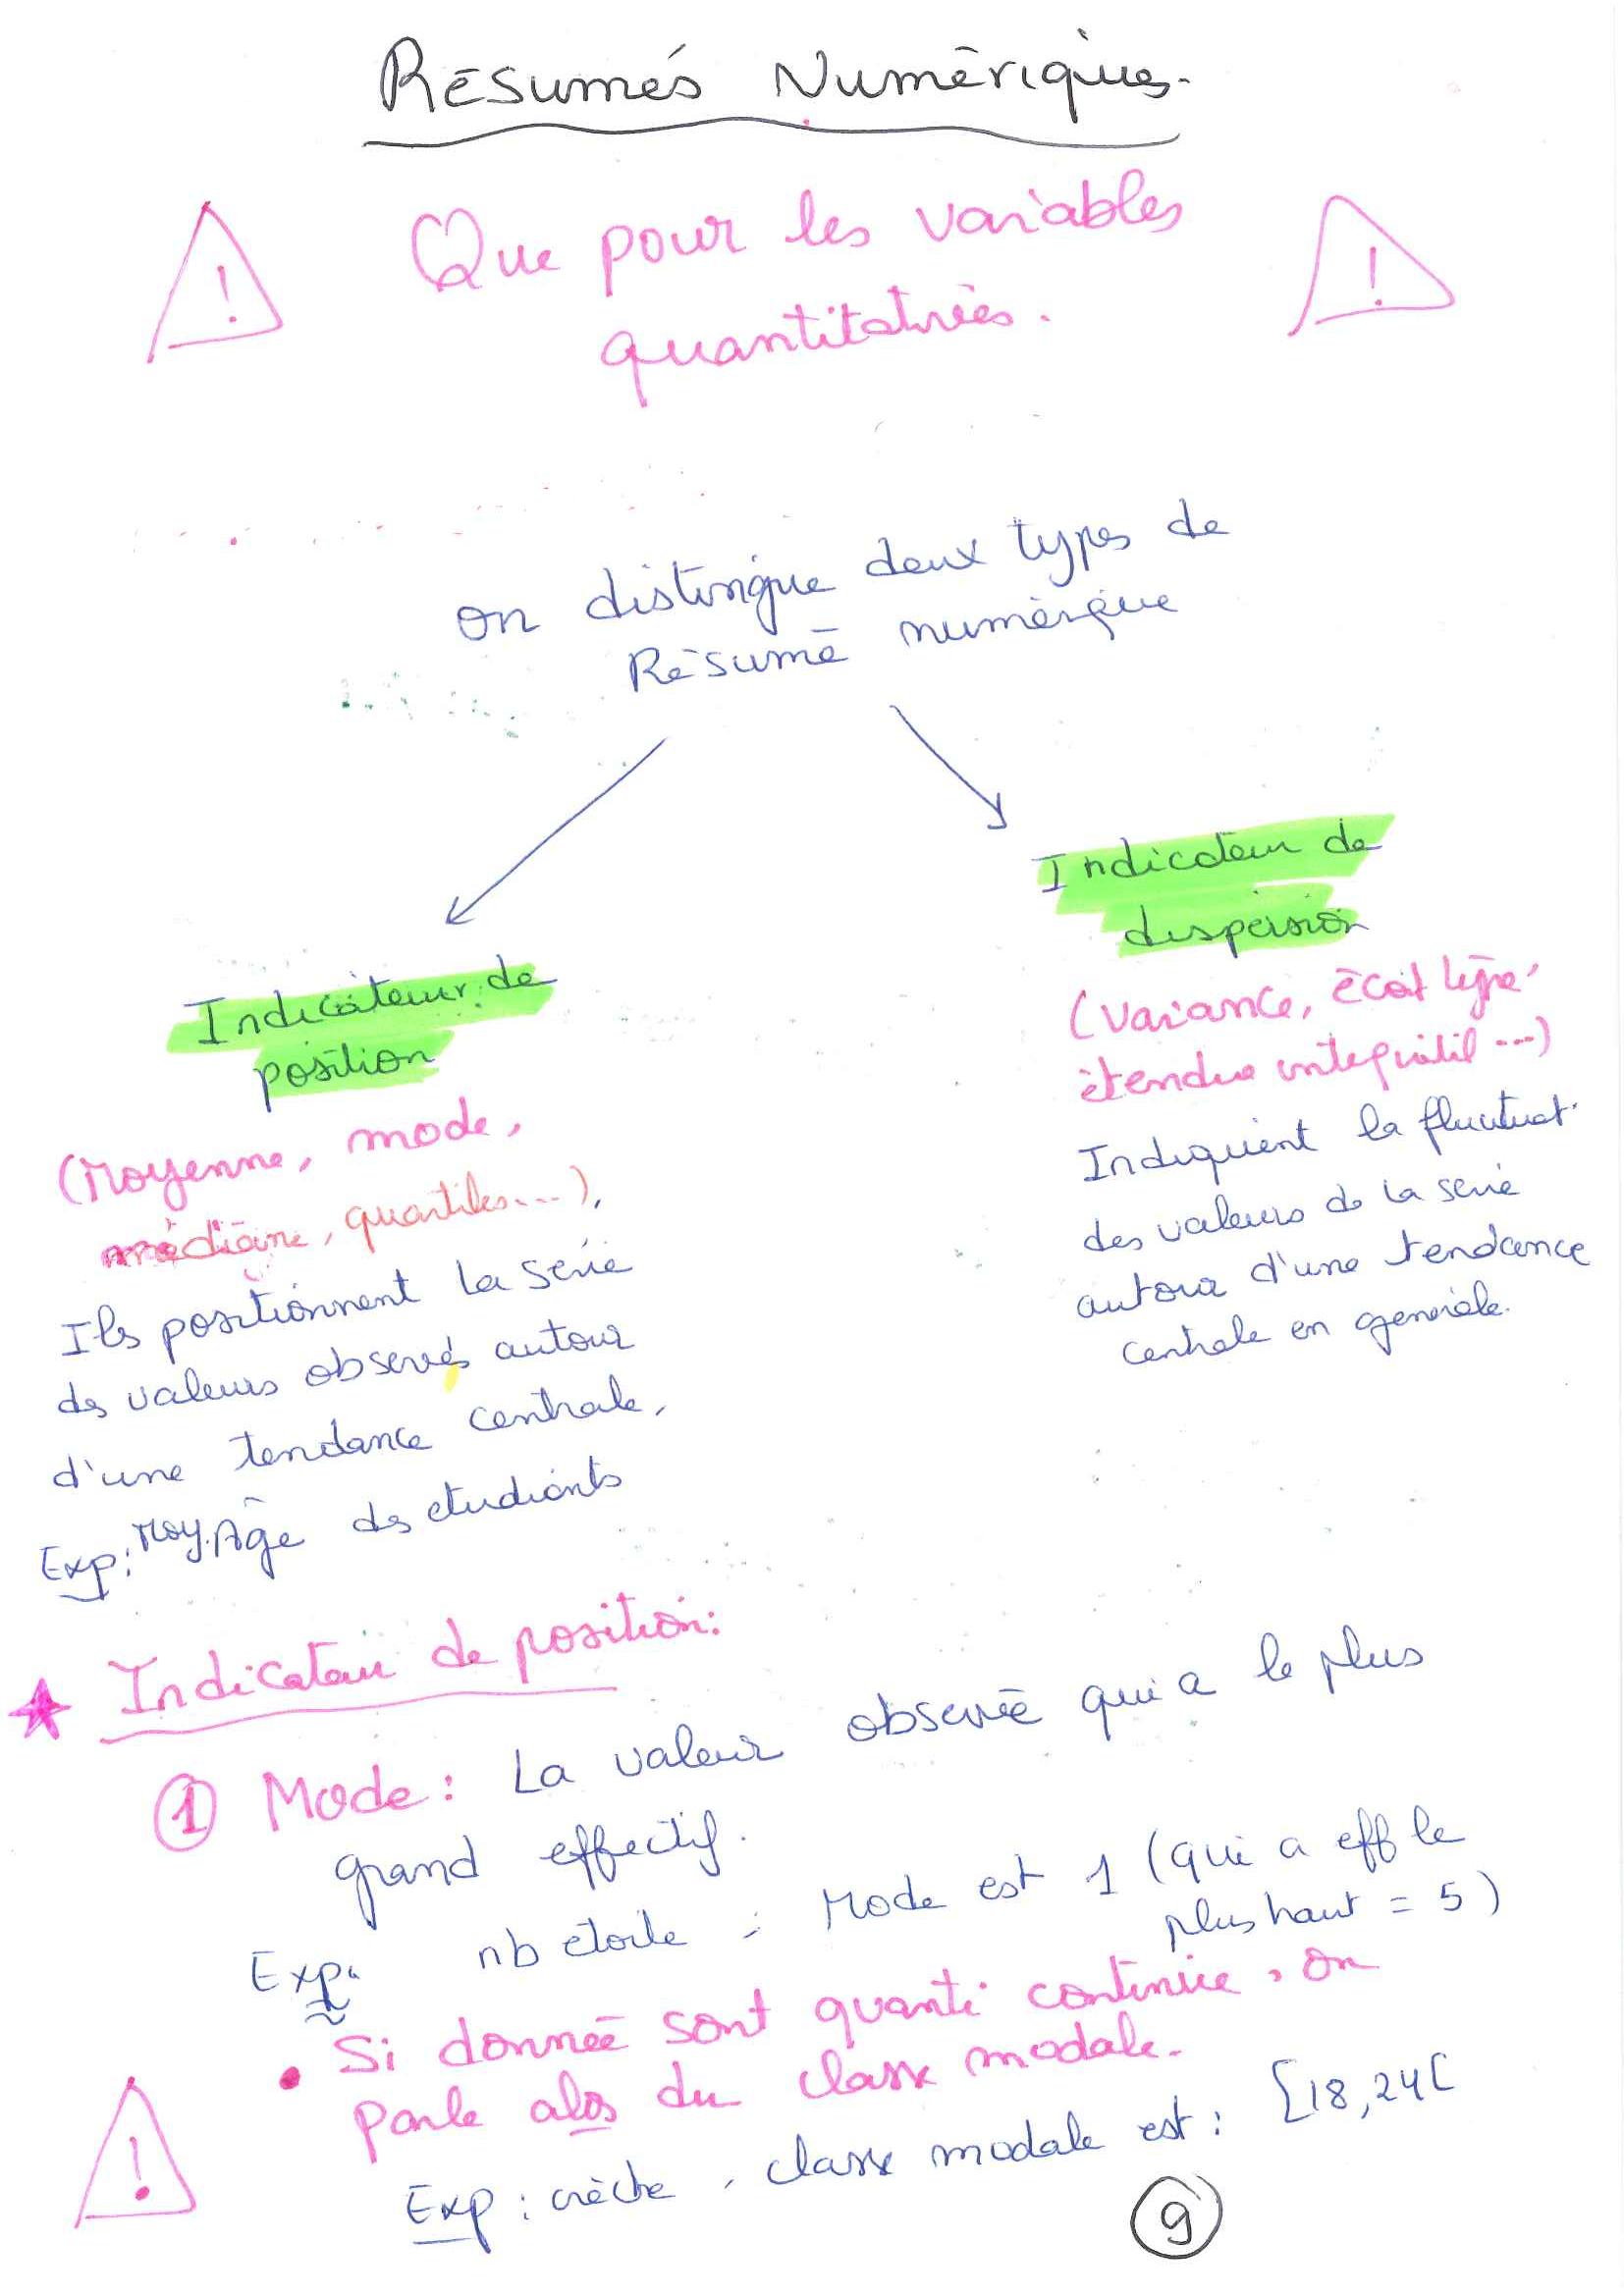 Résumés Numériques.
! Que pour les variables !
quantitatives.
on distingue deux types de
Résumé numérique
Indicateur de
position
(Moyenne, mode,
médiane, quartiles...),
Ils positionnent la série
des valeurs observés autour
d'une tendance centrale,
Exp: Moy. Âge des etudiants
Indicateur de
dispersion
(variance, écart type
étendue interquartil ...)
Indiquent la fluctuat.
des valeurs de la serie
autour d'une tendance
centrale en generale.
Indicateur de position:
1 Mode: La valeur observée qui a le plus
grand effectif.
Exp. nb étoile : Mode est 1 (qui a eff le
plus haut = 5)
• Si donnée sont quanti continue, on
parle alos du classe modale.
! Exp : crèche, classe modale est : [18,24[
9